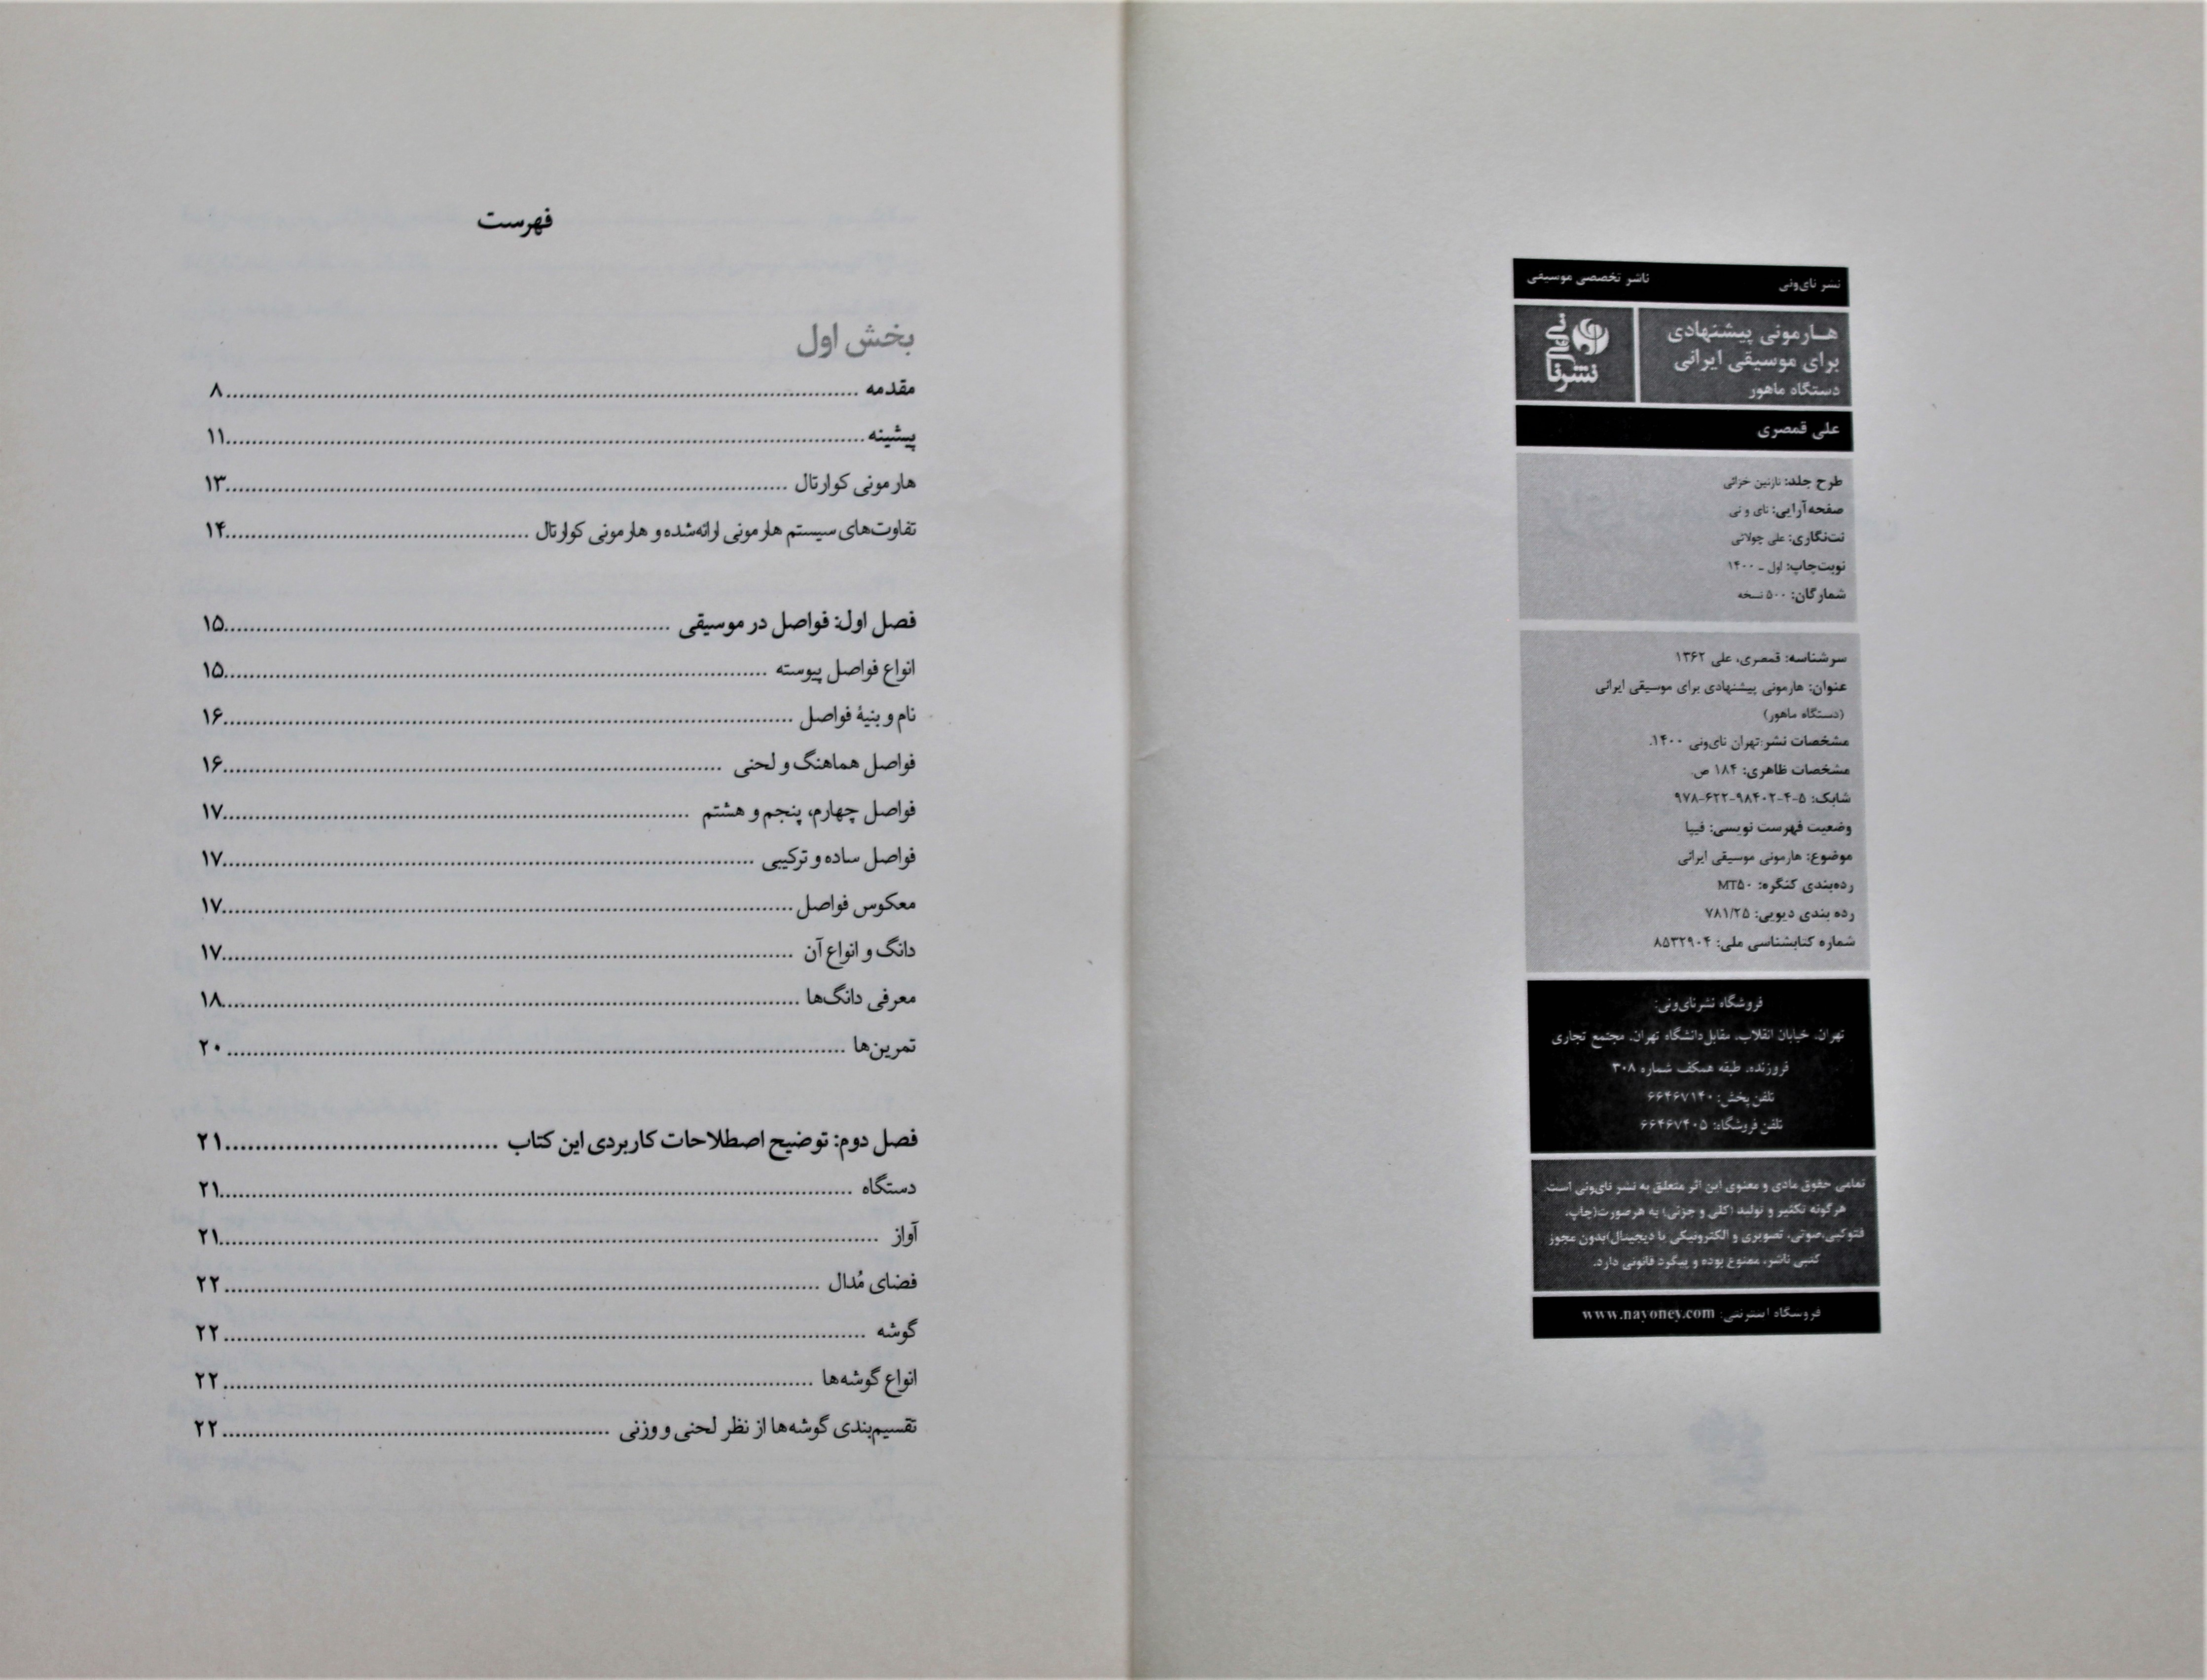 نشر نای‌ونی ناشر تخصصی موسیقی
هارمونی پیشنهادی
برای موسیقی ایرانی
دستگاه ماهور
نشر نای و نی
علی قمصری
طرح جلد: نازنین خزائی
صفحه‌آرایی: نای و نی
نت‌نگاری: علی چولائی
نوبت‌چاپ: اول ـ ۱۴۰۰
شمارگان: ۵۰۰ نسخه
سرشناسه: قمصری، علی ۱۳۶۲
عنوان: هارمونی پیشنهادی برای موسیقی ایرانی
(دستگاه ماهور)
مشخصات نشر:تهران نای‌ونی ۱۴۰۰.
مشخصات ظاهری: ۱۸۴ ص.
شابک: ۵-۴-۹۸۴۰۲-۶۲۲-۹۷۸
وضعیت فهرست نویسی: فیپا
موضوع: هارمونی موسیقی ایرانی
رده‌بندی کنگره: MT۵۰
رده بندی دیویی: ۷۸۱/۲۵
شماره کتابشناسی ملی: ۸۵۳۲۹۰۴
فروشگاه نشرنای‌ونی:
تهران، خیابان انقلاب، مقابل‌دانشگاه تهران، مجتمع تجاری
فروزنده، طبقه همکف شماره ۳۰۸
تلفن پخش: ۶۶۴۶۷۱۴۰
تلفن فروشگاه: ۶۶۴۶۷۴۰۵
تمامی حقوق مادی و معنوی این اثر متعلق به نشر نای‌ونی است.
هرگونه تکثیر و تولید (کلی و جزئی) به هرصورت(چاپ،
فتوکپی،صوتی، تصویری و الکترونیکی یا دیجیتال)بدون مجوز
کتبی ناشر، ممنوع بوده و پیگرد قانونی دارد.
فروشگاه اینترنتی: www.nayoney.com
فهرست
بخش اول
مقدمه ........ ۸
پیشینه ........ ۱۱
هارمونی کوارتال ........ ۱۳
تفاوت‌های سیستم هارمونی ارائه‌شده و هارمونی کوارتال ........ ۱۴
فصل اول: فواصل در موسیقی ........ ۱۵
انواع فواصل پیوسته ........ ۱۵
نام و بنیهٔ فواصل ........ ۱۶
فواصل هماهنگ و لحنی ........ ۱۶
فواصل چهارم، پنجم و هشتم ........ ۱۷
فواصل ساده و ترکیبی ........ ۱۷
معکوس فواصل ........ ۱۷
دانگ و انواع آن ........ ۱۷
معرفی دانگ‌ها ........ ۱۸
تمرین‌ها ........ ۲۰
فصل دوم: توضیح اصطلاحات کاربردی این کتاب ........ ۲۱
دستگاه ........ ۲۱
آواز ........ ۲۱
فضای مُدال ........ ۲۲
گوشه ........ ۲۲
انواع گوشه‌ها ........ ۲۲
تقسیم‌بندی گوشه‌ها از نظر لحنی و وزنی ........ ۲۲